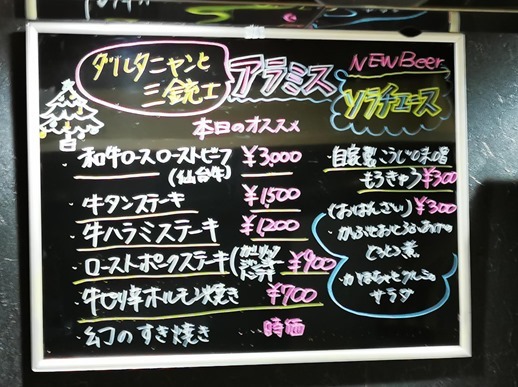 ダルタニャンと
三銃士
アラミス
NEW Beer
ソラチエース
本日のオススメ
・和牛ロースローストビーフ ¥3,000
(仙台牛)
・牛タンステーキ ¥1500
・牛ハラミステーキ ¥1200
・ローストポークステーキ ¥900
・牛ホルモン焼き ¥700
・幻のすき焼き 時価
・自家製こうじ味噌
もろきゅう ¥300
(おばんざい) ¥300
・かぶとおとうふあげの
とろとろ煮
・かぼちゃとクルミの
サラダ